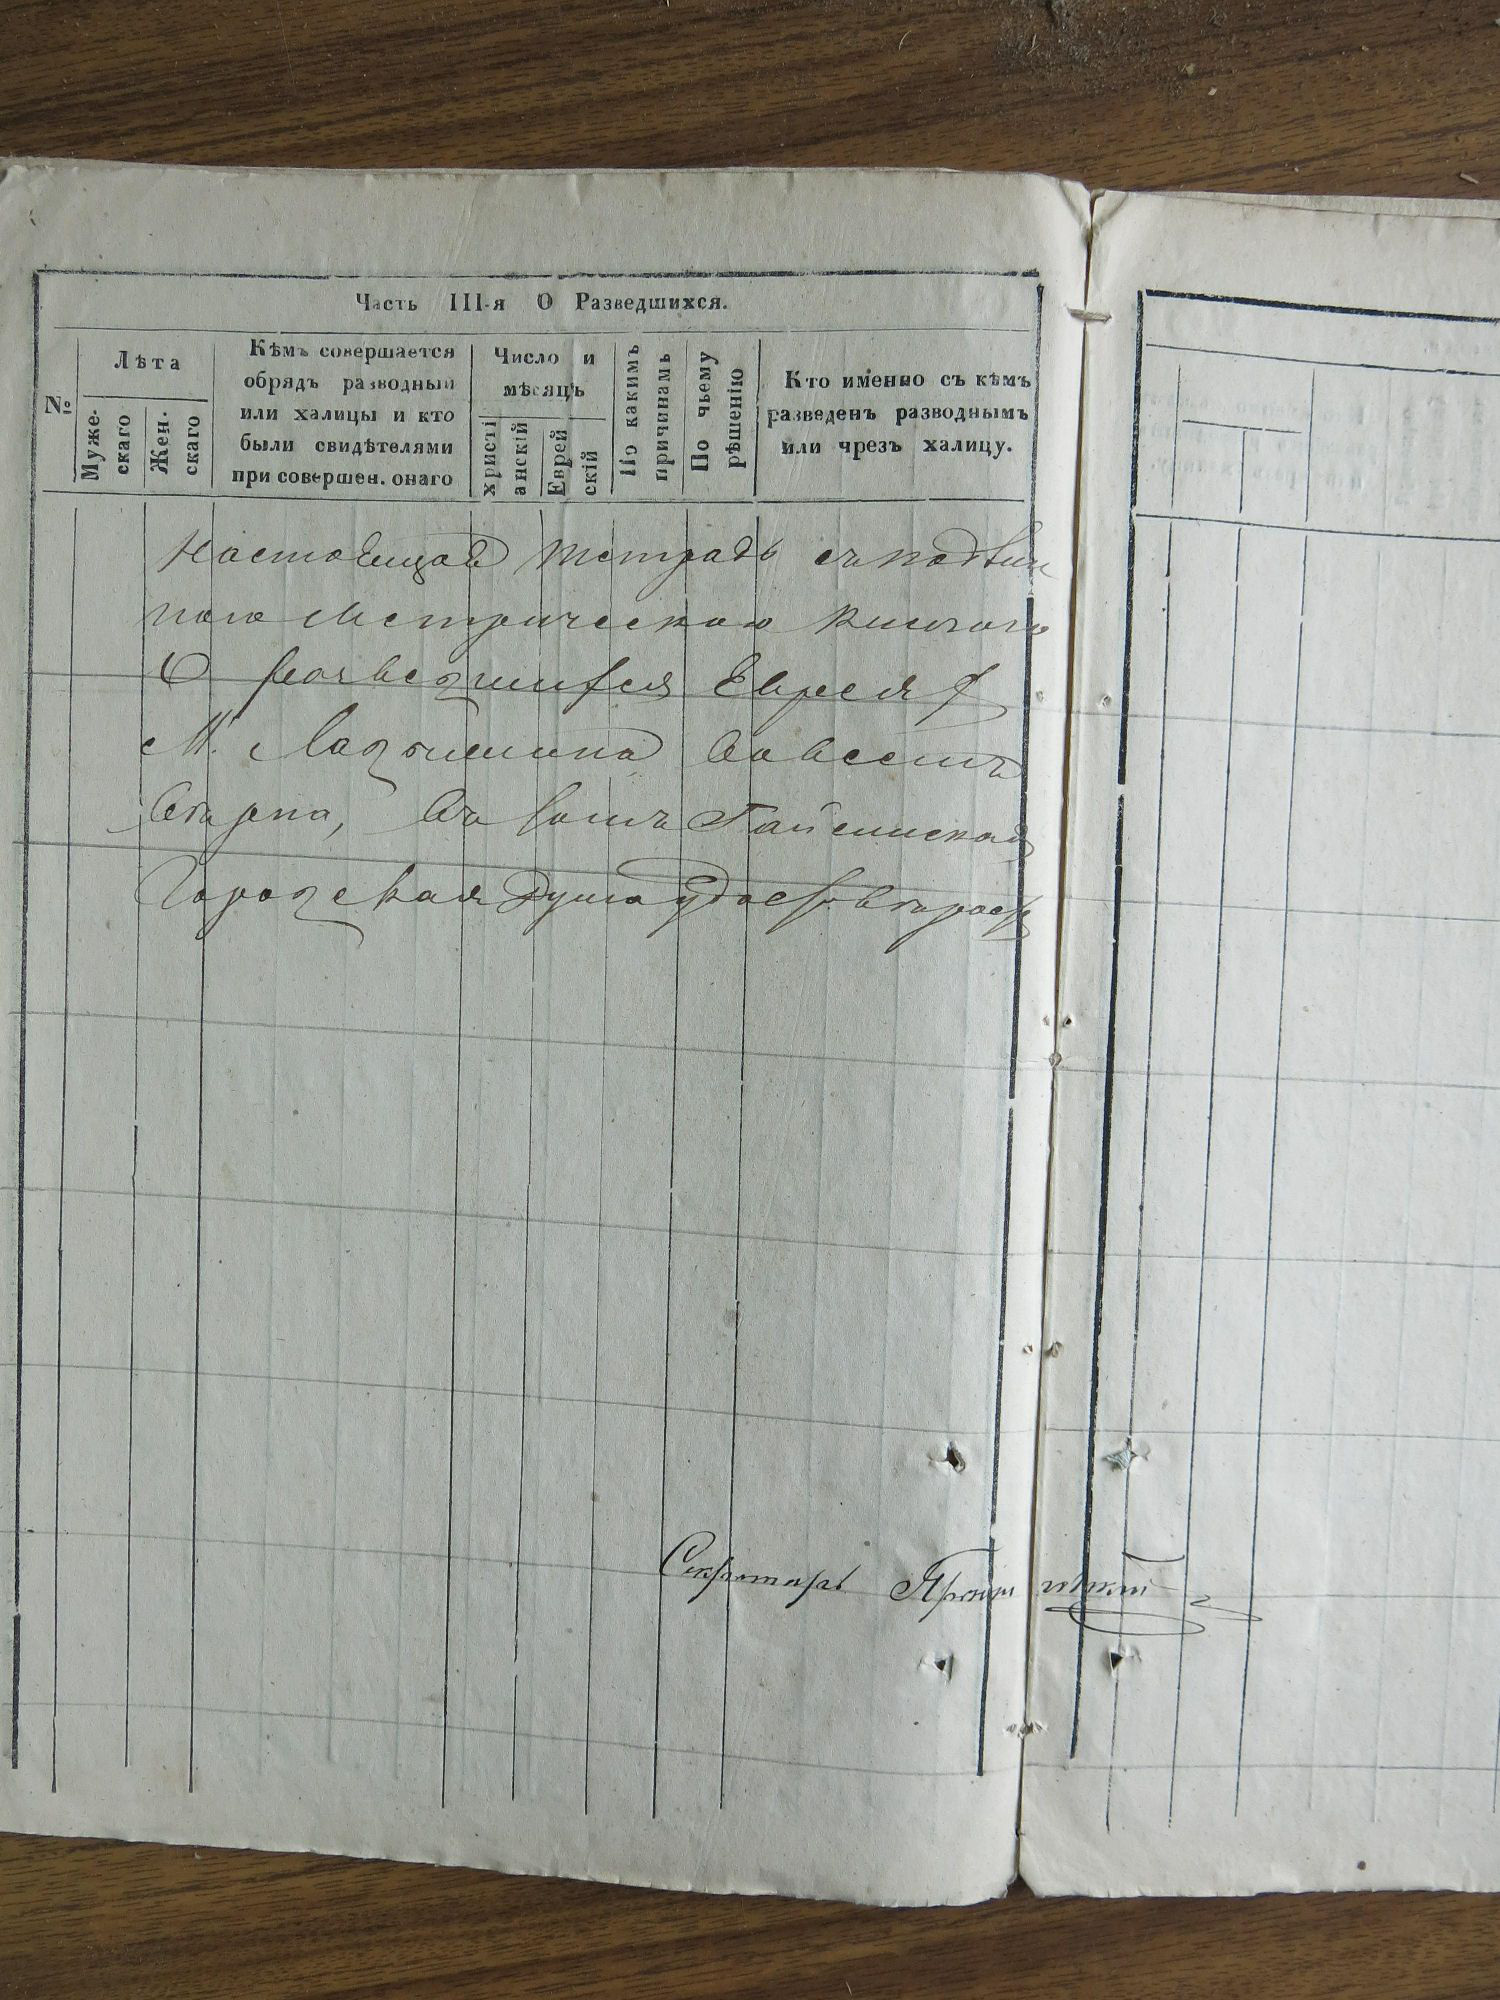 Часть III-я О Разведшихся.
№
Лѣта
Муже-
скаго
Жен.
скаго
Кѣмъ совершается
обрядъ разводный
или халицы и кто
были свидѣтелями
при совершен. онаго
Число и
мѣсяцъ
христі
анскій
Еврей
скій
По какимъ
причинамъ
По чьему
рѣшенію
Кто именно съ кѣмъ
разведенъ разводнымъ
или чрезъ халицу.
Настоещая тетрадь съ подлин
ною Метрическою книгою
О разведшихся Евреях
М. Ладыжина во всемъ
верна, въ томъ Гайсинская
Городская Дума удостоверает
Секретарь